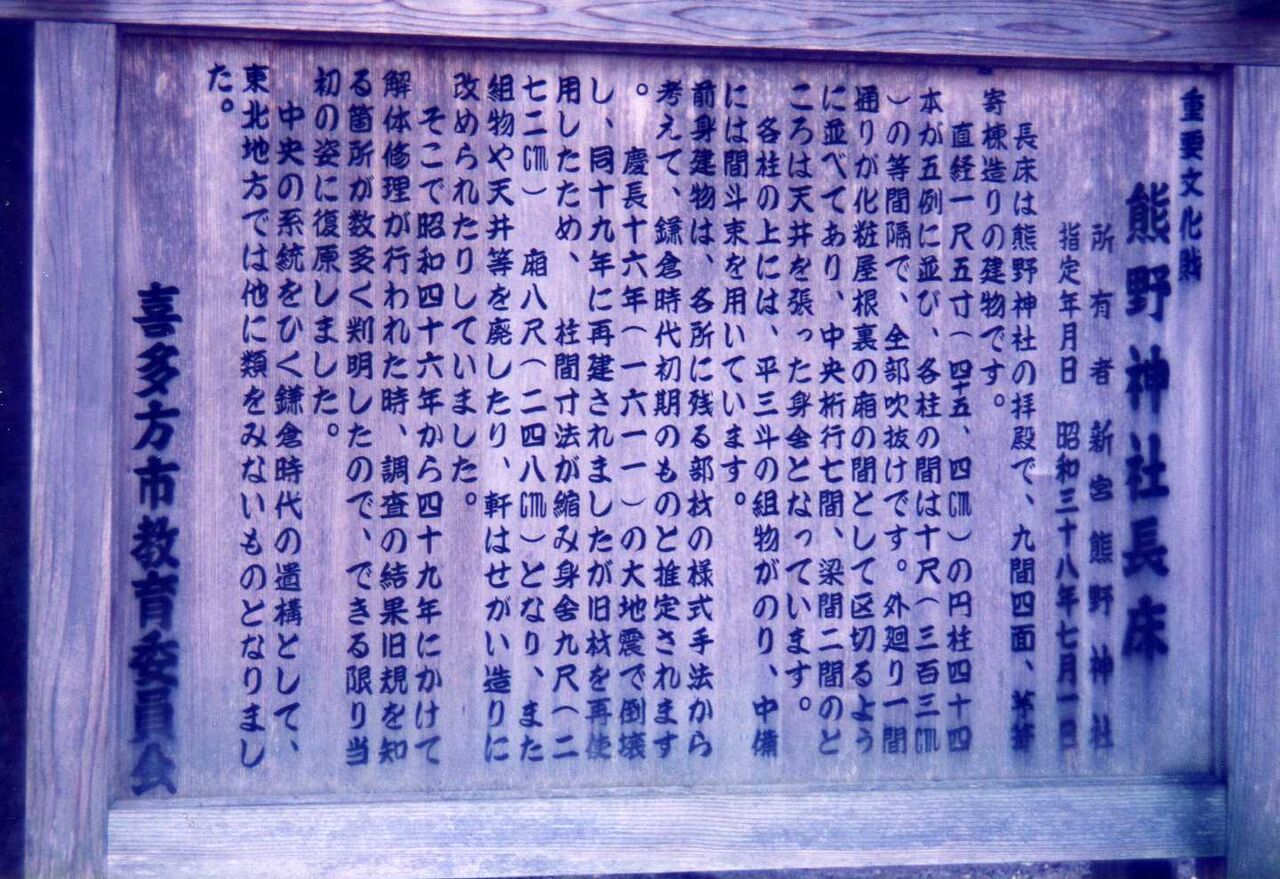 重要文化財
熊野神社長床
所有者 新宮熊野神社
指定年月日 昭和三十八年七月一日
長床は熊野神社の拝殿で、九間四面、茅葺
寄棟造りの建物です。
直経一尺五寸(四十五、四㎝)の円柱四十四
本が五例に並び、各柱の間は十尺(三百三㎝
)の等間隔で、全部吹抜けです。外廻り一間
通りが化粧屋根裏の廂の間として区切るよう
に並べてあり、中央桁行七間、梁間二間のと
ころは天井を張った身舎となっています。
各柱の上には、平三斗の組物がのり、中備
には間斗束を用いています。
前身建物は、各所に残る部材の様式手法から
考えて、鎌倉時代初期のものと推定されます
。慶長十六年(一六一一)の大地震で倒壊
し、同十九年に再建されましたが旧材を再使
用したため、柱間寸法が縮み身舎九尺(二
七二㎝) 廂八尺(二四八㎝)となり、また
組物や天井等を廃したり、軒はせがい造りに
改められたりしていました。
そこで昭和四十六年から四十九年にかけて
解体修理が行われた時、調査の結果旧規を知
る箇所が数多く判明したので、できる限り当
初の姿に復原しました。
中央の系統をひく鎌倉時代の遺構として、
東北地方では他に類をみないものとなりまし
た。
喜多方市教育委員会